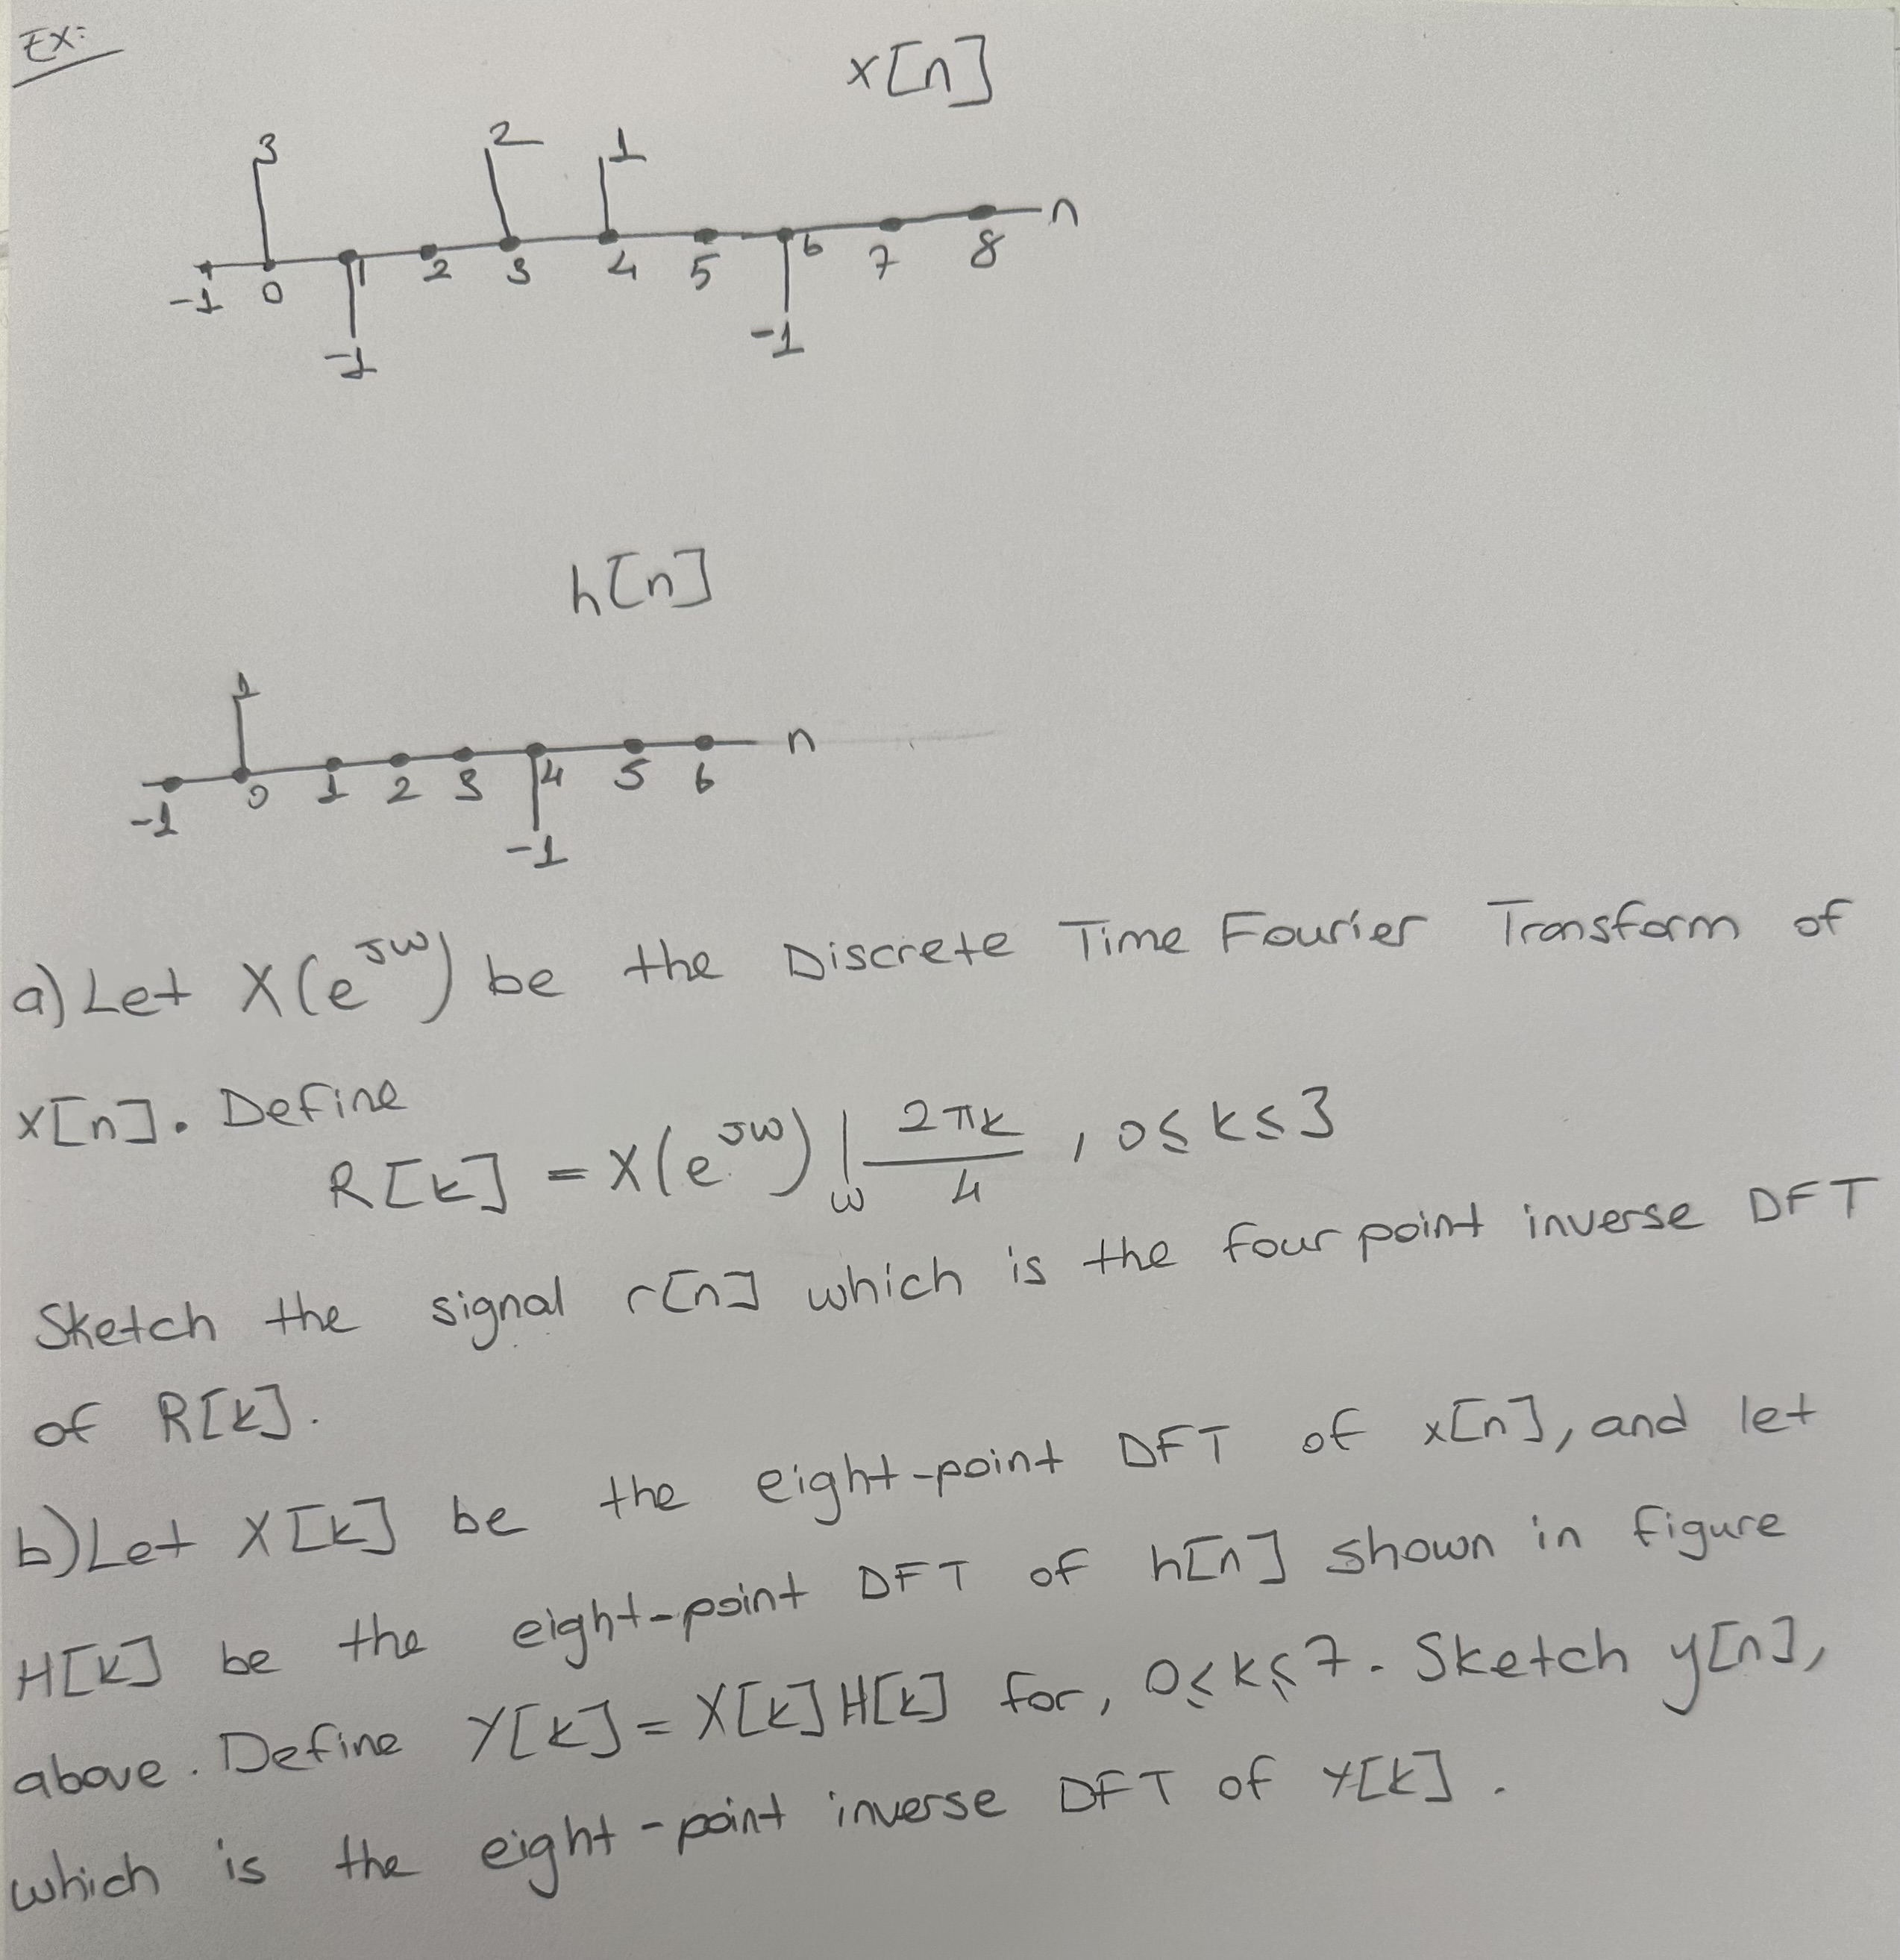 Ex:
x[n]
3 2 1
n
-1 0 1 2 3 4 5 6 7 8
-1 -1
h[n]
1
n
-1 0 1 2 3 4 5 6
-1
a) Let X(e^jω) be the Discrete Time Fourier Transform of
x[n]. Define
R[k] = X(e^jω)|ω 2πk/4 , 0≤k≤3
Sketch the signal r[n] which is the four point inverse DFT
of R[k].
b) Let X[k] be the eight-point DFT of x[n], and let
H[k] be the eight-point DFT of h[n] shown in figure
above. Define Y[k] = X[k]H[k] for, 0≤k≤7. Sketch y[n],
which is the eight-point inverse DFT of Y[k].